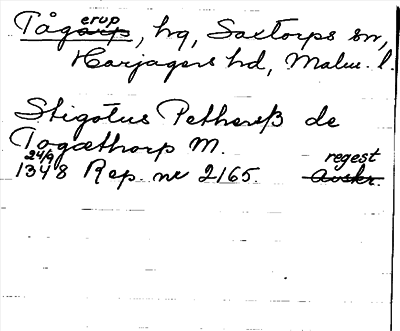 Tågarp erup, hg, Saxtorps sn,
Harjagers hd, Malm. l.
Stigotus Pethersß de
Togæthorp M.
24/9 1348 Rep. nr 2165. regest Avskr.